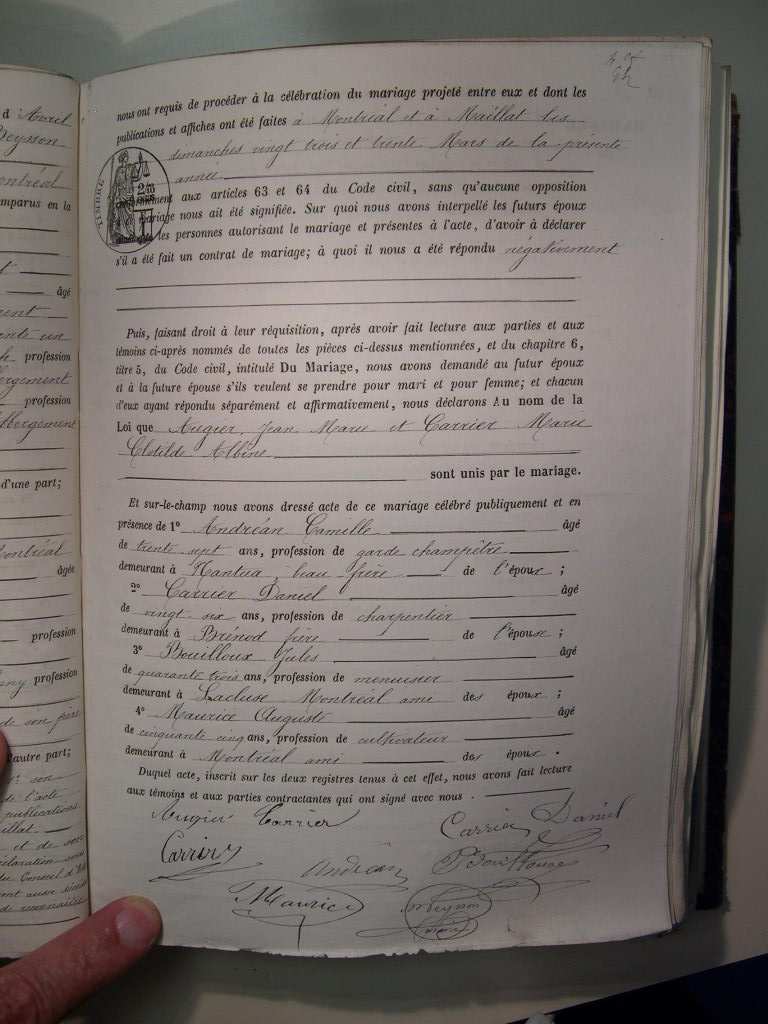 nous ont requis de procéder à la célébration du mariage projeté entre eux et dont les
publications et affiches ont été faites à Montréal et à Maillat les
dimanches vingt trois et trente Mars de la présente
année
conformément aux articles 63 et 64 du Code civil, sans qu'aucune opposition
mariage nous ait été signifiée. Sur quoi nous avons interpellé les futurs époux
les personnes autorisant le mariage et présentes à l'acte, d'avoir à déclarer
s'il a été fait un contrat de mariage; à quoi il nous a été répondu négativement
Puis, faisant droit à leur réquisition, après avoir fait lecture aux parties et aux
témoins ci-après nommés de toutes les pièces ci-dessus mentionnées, et du chapitre 6,
titre 5, du Code civil, intitulé Du Mariage, nous avons demandé au futur époux
et à la future épouse s'ils veulent se prendre pour mari et pour femme; et chacun
d'eux ayant répondu séparément et affirmativement, nous déclarons Au nom de la
Loi que Augier, Jean Marie et Carrier Marie
Clotilde Albine
sont unis par le mariage.
Et sur-le-champ nous avons dressé acte de ce mariage célébré publiquement et en
présence de 1º Andréan Camille âgé
de trente sept ans, profession de garde champêtre
demeurant à Nantua, beau frère de l'époux ;
2º Carrier Daniel âgé
de vingt six ans, profession de charpentier
demeurant à Brénod frère de l'épouse ;
3º Bouilloux Jules âgé
de quarante trois ans, profession de menuisier
demeurant à Lacluse Montréal ami des époux ;
4º Maurice Auguste âgé
de cinquante cinq ans, profession de cultivateur
demeurant à Montréal ami des époux.
Duquel acte, inscrit sur les deux registres tenus à cet effet, nous avons fait lecture
aux témoins et aux parties contractantes qui ont signé avec nous.
Augier Carrier Carrier Daniel
Andréan
Maurice
TIMBRE
d Avril
Montréal
comparus en la
âgé
profession
profession
d'une part;
Montréal
âgée
profession
profession
de son père
d'autre part;
son
de l'acte
publications
et de